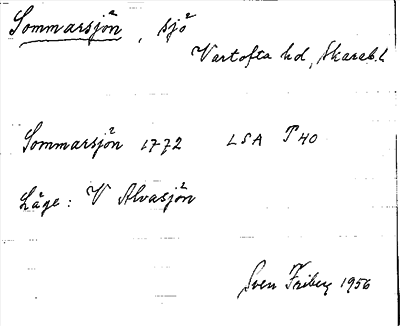 Sommarsjön, sjö
Vartofta hd, Skarab.l
Sommarsjön 1772 LSA P 40
Läge: V Alvasjön
Sven Friberg 1956